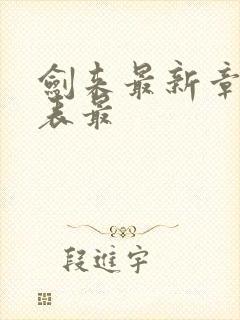 剑来最新章
表最
段進宇